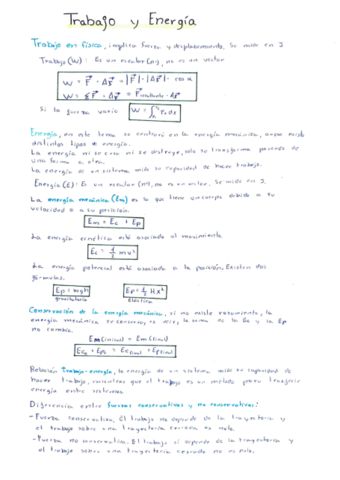 Trabajo y Energía
Trabajo en física, implica fuerza y desplazamiento. Se mide en J
Trabajo (W): Es un escalar (nº), no es un vector
W = F⃗ · Δr⃗ = |F⃗| · |Δr⃗| · cos α
W = Σ F⃗ · Δr⃗ = F resultante · Δr⃗
Si la fuerza varía W = ∫ Fx dx
Energía, en este tema se centrará en la energía mecánica, aunque existen
distintos tipos de energía.
La energía ni se crea ni se destruye, solo se transforma pasando de
una forma a otra.
La energía de un sistema mide su capacidad de hacer trabajo.
Energía (E): Es un escalar (nº), no es un vector. Se mide en J.
La energía mecánica (Em) es la que tiene un cuerpo debido a su
velocidad o a su posición.
Em = Ec + Ep
La energía cinética está asociada al movimiento.
Ec = 1/2 m v²
La energía potencial está asociada a la posición. Existen dos
fórmulas.
Ep = mgh Ep = 1/2 K x²
gravitatoria Elástica
Conservación de la energía mecánica, si no existe rozamiento, la
energía mecánica se conserva, es decir, la suma de la Ec y la Ep
no cambia.
Em (inicial) = Em (final)
Ec₀ + Ep₀ = Ec (final) + Ep (final)
Relación trabajo-energía, la energía de un sistema mide su capacidad de
hacer trabajo, mientras que el trabajo es un método para transferir
energía entre sistemas
Diferencia entre fuerzas conservativas y no conservativas:
- Fuerza conservativa. El trabajo no depende de la trayectoria y
el trabajo sobre una trayectoria cerrada es nulo.
- Fuerza no conservativa. El trabajo sí depende de la trayectoria y
el trabajo sobre una trayectoria cerrada no es nulo.